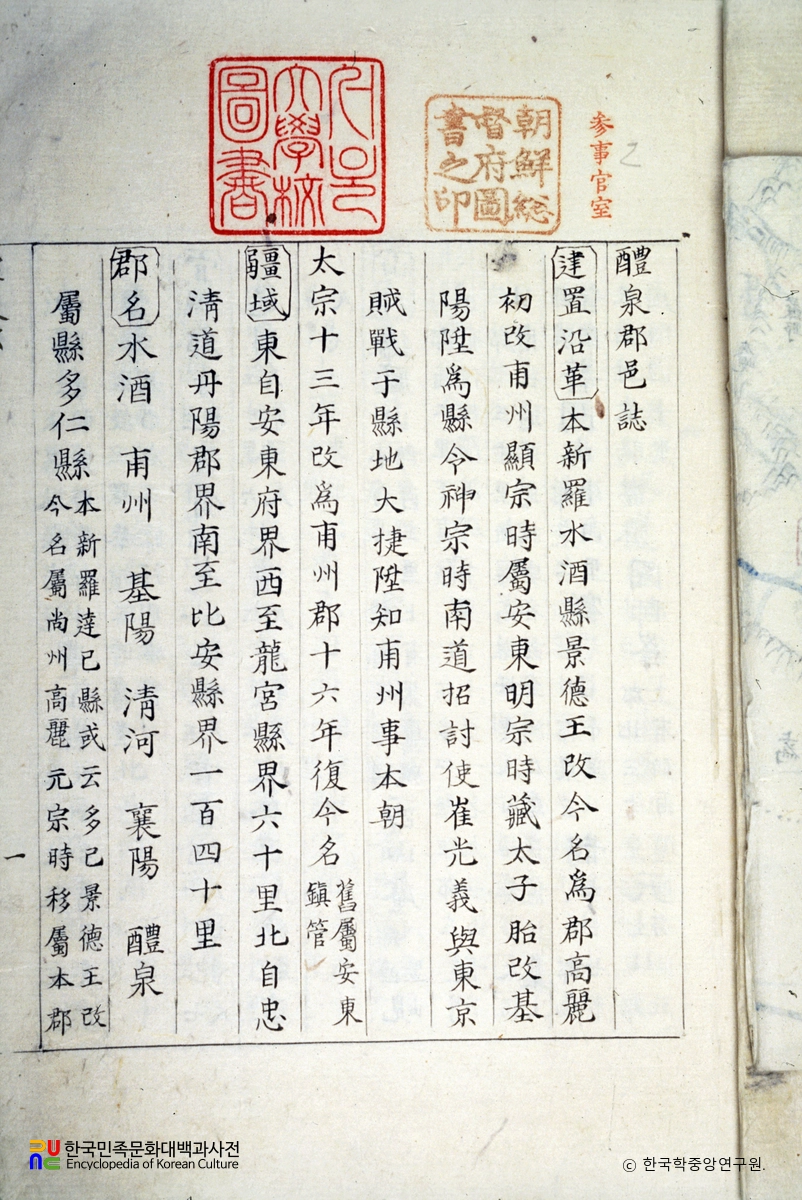 參事官室
2
朝鮮總
督府圖
書之印
大學校
圖書
醴泉郡邑誌
建置沿革本新羅水酒縣景德王改今名爲郡高麗
初改甫州顯宗時屬安東明宗時藏太子胎改基
陽陞爲縣令神宗時南道招討使崔光義與東京
賊戰于縣地大捷陞知甫州事本朝
太宗十三年改爲甫州郡十六年復今名舊屬安東
鎭管
疆域東自安東府界西至龍宮縣界六十里北自忠
淸道丹陽郡界南至比安縣界一百四十里
郡名水酒 甫州 基陽 淸河 襄陽 醴泉
屬縣多仁縣本新羅達已縣或云多已景德王改
今名屬尙州高麗元宗時移屬本郡
一
한국민족문화대백과사전
Encyclopedia of Korean Culture
ⓒ 한국학중앙연구원.